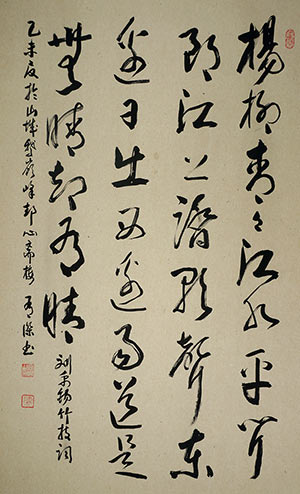 楊柳青々江水平聞
郎江上踏歌聲東
邊日出西邊雨道是
無晴却有晴
劉禹錫竹枝詞
乙未夏於山城峰却心齋書